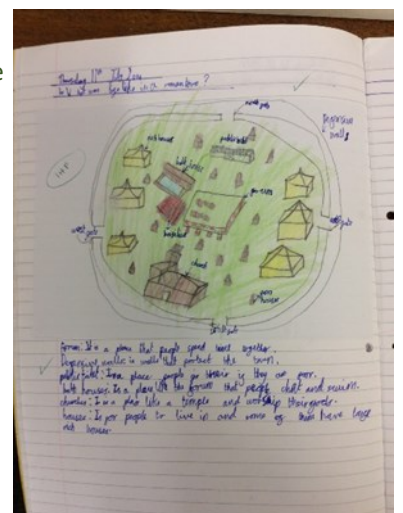 e
Thursday 11th July
was life like in a
north gate
defensive walls
rich house
public toilet
bath house
forum
west gate
east gate
church
poor house
south gate
forum: It is a place that people spend time together.
Defensive walls: is walls that protect the town.
public toilet: Is a place people go their if they are poor.
bath houses: Is a place like the forum that people chat and swim.
churches: Is a place like a temple and worship their gods.
houses: Is for people to live in and some of them have large
rich houses.